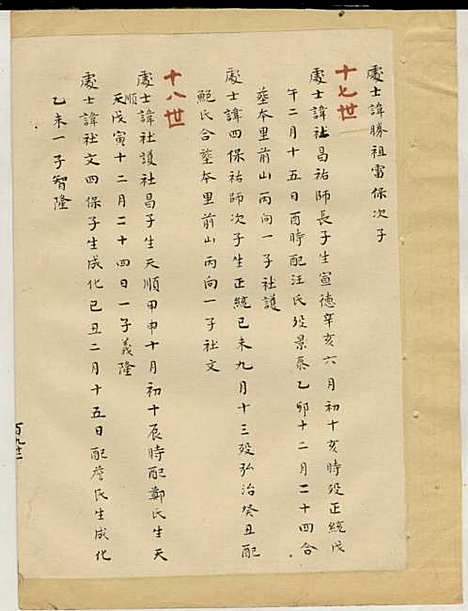 處士諱勝祖雷保次子
十七世
處士諱社昌祐師長子生宣德辛亥六月初十亥時歿正統戊
午二月十五日酉時配汪氏歿景泰乙卯十二月二十四合
塟本里前山丙向一子社護
處士諱四保祐師次子生正統己未九月十三歿弘治癸丑配
鮑氏合塟本里前山丙向一子社文
十八世
處士諱社護社昌子生天順甲申十月初十辰時配鄭氏生天
順戊寅十二月二十四日一子義隆
處士諱社文四保子生成化己丑二月十五日配詹氏生成化
乙未一子智隆